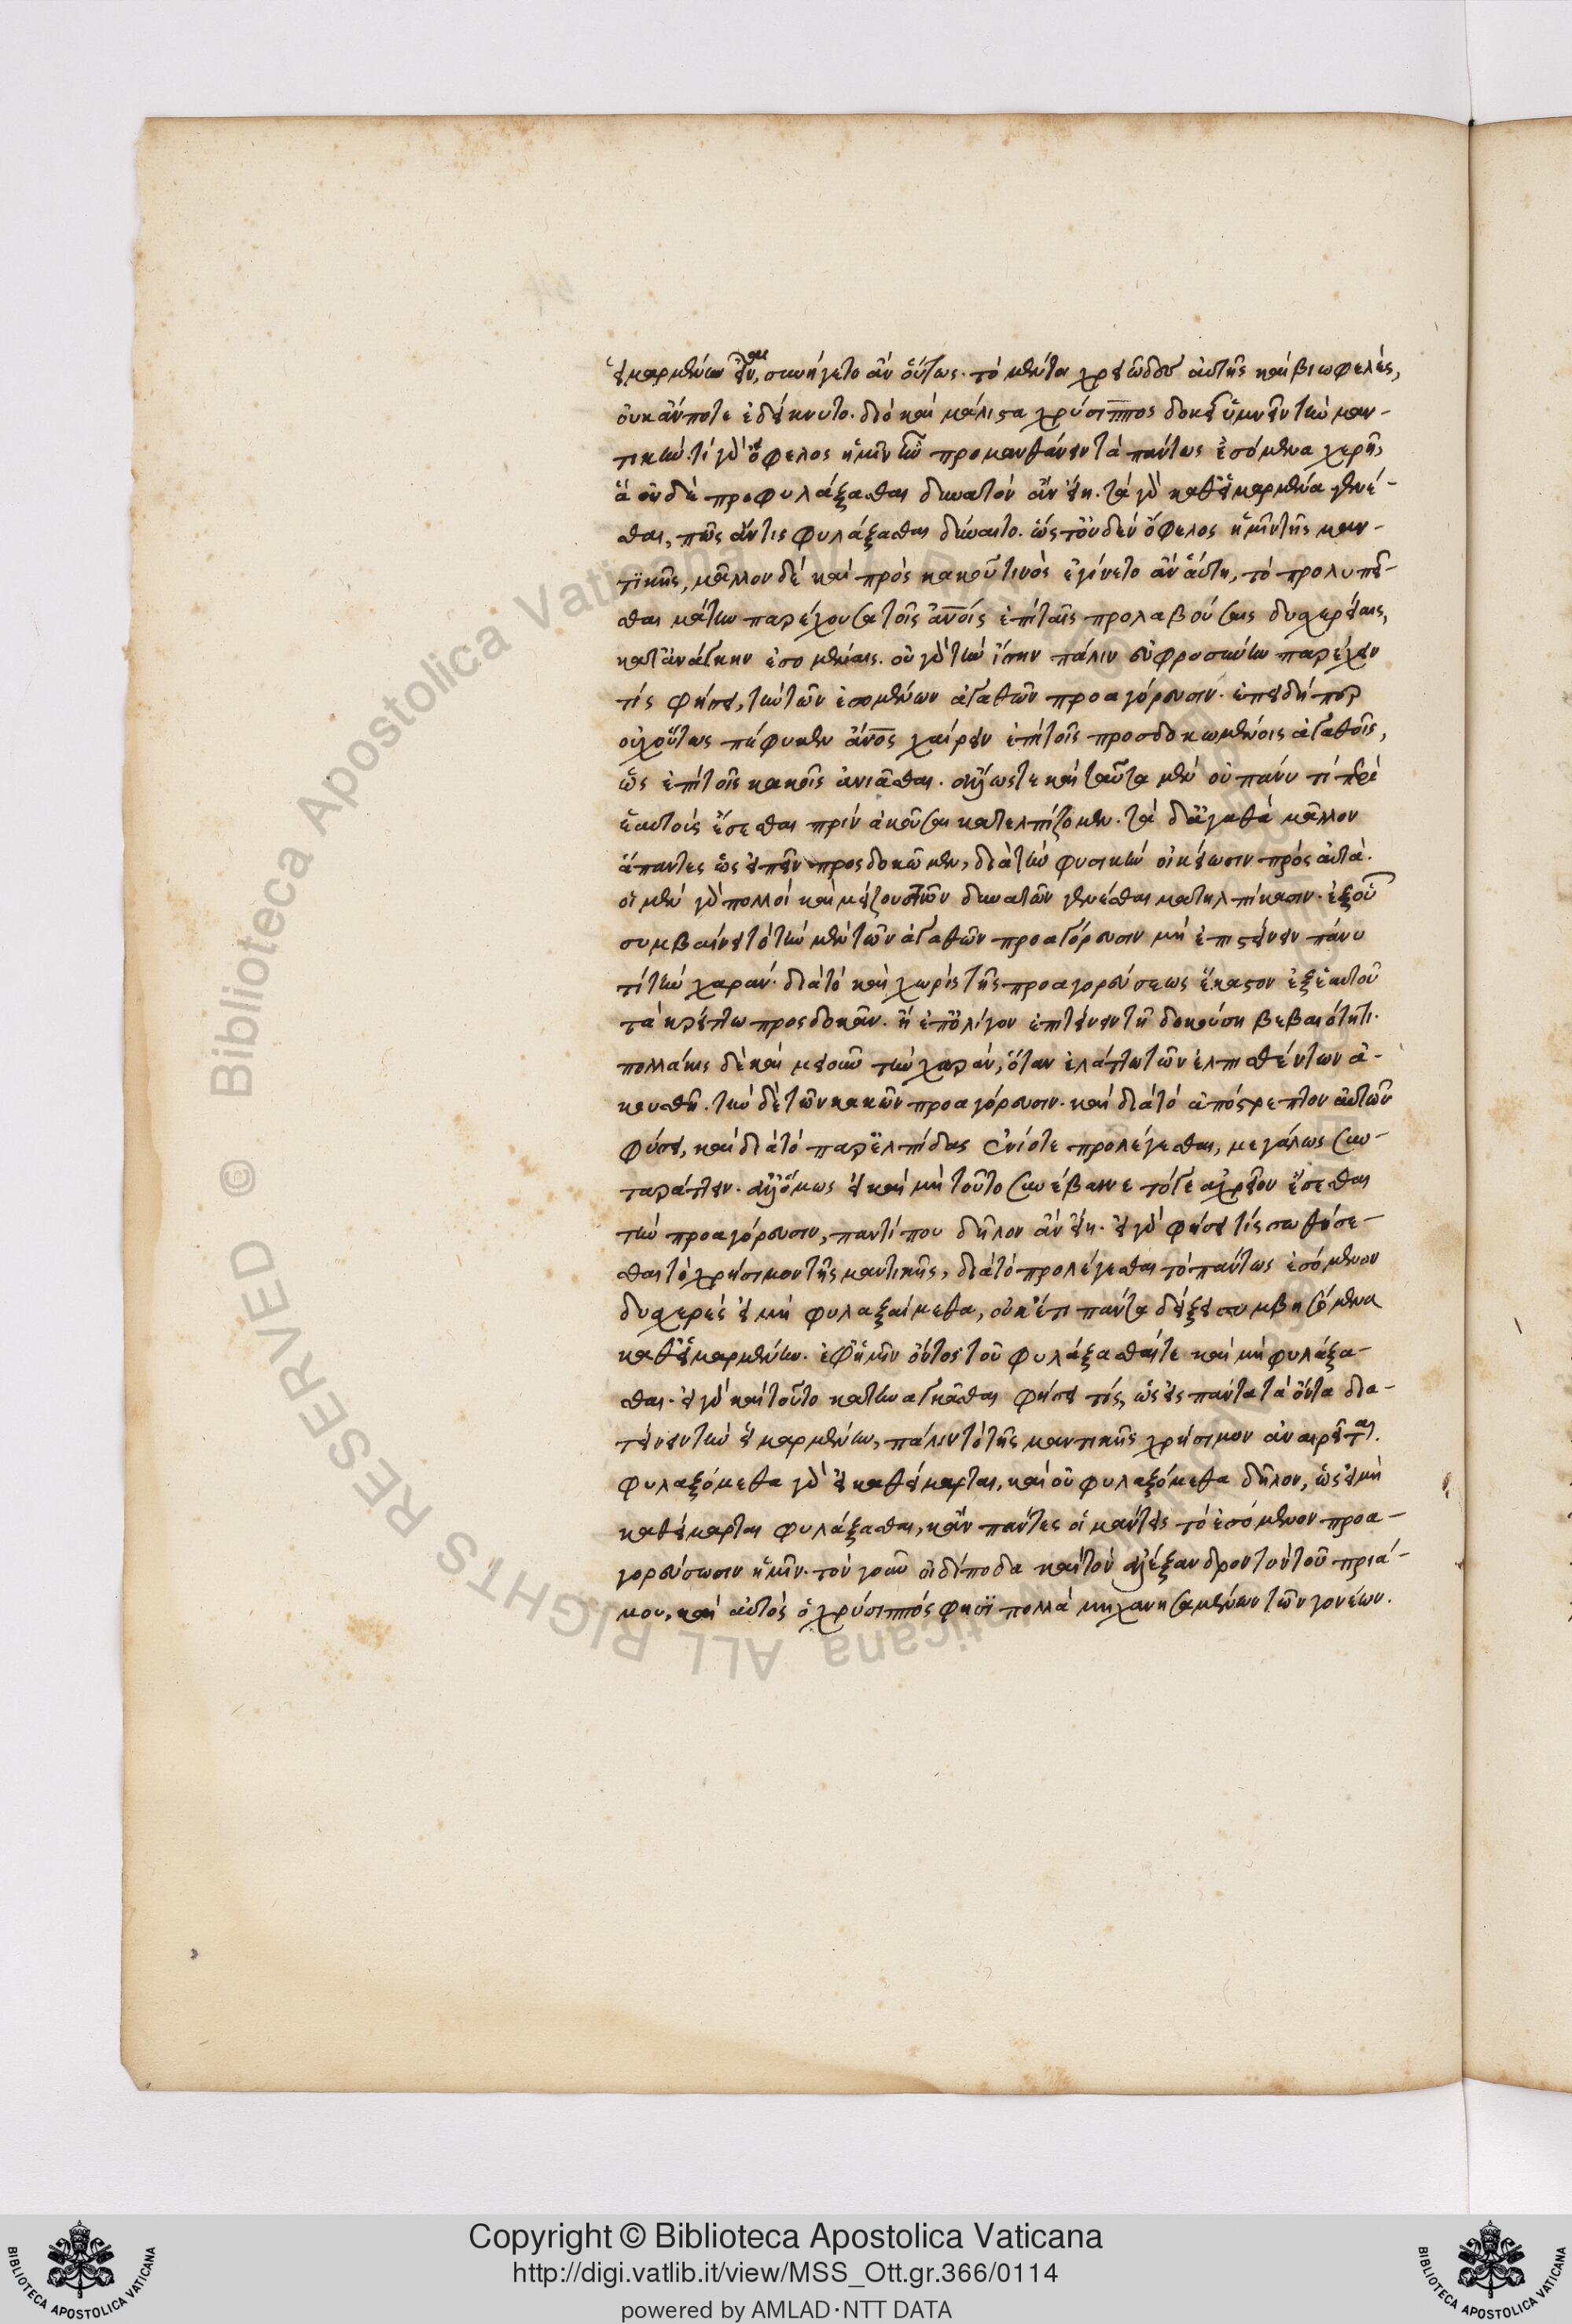 εἱμαρμένην εἶναι, συνήγετο ἂν οὕτως. τὸ μέντοι χρειῶδες αὐτῆς καὶ βιωφελὲς,
οὐκ ἄν ποτε ἐδείκνυτο. διὸ καὶ μάλιστα χρύσιππος δοκεῖ ὑμνεῖν τὴν μαν-
τικήν. τί γὰρ ὄφελος ἡμῖν ἦν προμανθάνειν τὰ πάντως ἐσόμενα
ἃ οὐδὲ προφυλάξασθαι δυνατὸν ἂν εἴη. τὰ γὰρ καθ' εἱμαρμένα γενέ-
σθαι, πῶς ἄν τις φυλάξασθαι δύναιτο. ὥς τ' οὐδὲν ὄφελος ἡμῖν τῆς μαν-
τικῆς, μᾶλλον δὲ καὶ πρὸς κακοῦ τινὸς ἐγίνετο ἂν αὕτη, τὸ προλυπεῖ-
σθαι μάτην παρέχουσα τοῖς ἀνοις ἐπὶ ταῖς προλαβούσαις δυσχερείαις,
κατ' ἀνάγκην ἐσομέναις. οὐ γὰρ τὴν ἴσην πάλιν εὐφροσύνην παρέχειν
τίς φήσει, τὴν τῶν ἐσομένων ἀγαθῶν προαγόρευσιν. ἐπειδήπερ
οὐχ οὕτως πέφυκεν ἄνος χαίρειν ἐπὶ τοῖς προσδοκωμένοις ἀγαθοῖς,
ὡς ἐπὶ τοῖς κακοῖς ἀνιᾶσθαι. ἄλλως τε καὶ ταῦτα μὲν οὐ πάνυ τι περὶ
ἑαυτοὺς ἔσεσθαι πρὶν ἀκοῦσαι κατελπίζομεν. τὰ δ' ἀγαθὰ μᾶλλον
ἅπαντες ὡς εἰπεῖν προσδοκῶμεν, διὰ τὴν φυσικὴν οἰκείωσιν πρὸς αὐτά.
οἱ μὲν γὰρ πολλοὶ καὶ μείζονα τῶν δυνατῶν γενέσθαι κατηλπίκασιν. ἐξ οὗ
συμβαίνει τὸ τὴν μὲν τῶν ἀγαθῶν προαγόρευσιν μὴ ἐπιτείνειν πάνυ
τι τὴν χαράν. διὰ τὸ καὶ χωρὶς τῆς προαγορεύσεως ἕκαστον ἐξ ἑαυτοῦ
τὰ κρείττω προσδοκᾶν. ἢ ἐπ' ὀλίγον ἐπιτείνειν τῇ δοκούσῃ βεβαιότητι.
πολλάκις δὲ καὶ μειοῦν τὴν χαράν, ὅταν ἐλάττω τῶν ἐλπισθέντων ἀ-
κουσθῇ. τὴν δὲ τῶν κακῶν προαγόρευσιν. καὶ διὰ τὸ ἀπόστρεπτον αὐτῶν
φύσει, καὶ διὰ τὸ παρ' ἐλπίδας ἐνίοτε προλέγεσθαι, μεγάλως συν-
ταράττειν. ἀλλ' ὅμως εἰ καὶ μὴ τοῦτο συνέβαινε τό γε ἀχρεῖον ἔσεσθαι
τὴν προαγόρευσιν, παντί που δῆλον ἂν εἴη. εἰ γὰρ φήσει τίς σωθήσε-
σθαι τὸ χρήσιμον τῆς μαντικῆς, διὰ τὸ προλέγεσθαι τὸ πάντως ἐσόμενον
δυσχερὲς εἰ μὴ φυλαξαίμεθα, οὐκ ἔτι πάντα δείξει συμβησόμενα
καθ' εἱμαρμένην. ἐφ' ἡμῖν ὄντος τοῦ φυλάξασθαί τε καὶ μὴ φυλάξα-
σθαι. εἰ γὰρ καὶ τοῦτο κατηναγκᾶσθαι φήσει τίς, ὡς εἰς πάντα τὰ ὄντα δια-
τείνειν τὴν εἱμαρμένην, πάλιν τὸ τῆς μαντικῆς χρήσιμον ἀναιρεῖται.
φυλαξόμεθα γὰρ εἰ καθείμαρται, καὶ οὐ φυλαξόμεθα δῆλον, ὡς εἰ μὴ
καθείμαρται φυλάξασθαι, κἂν πάντες οἱ μάντεις τὸ ἐσόμενον προα-
γορεύσωσιν ἡμῖν. τὸν γοῦν οἰδίποδα καὶ τὸν ἀλέξανδρον τὸν τοῦ πριά-
μου, καὶ αὐτὸς ὁ χρύσιππός φησϊ πολλὰ μηχανησαμένων τῶν γονέων.
Copyright © Biblioteca Apostolica Vaticana
http://digi.vatlib.it/view/MSS_Ott.gr.366/0114
powered by AMLAD·NTT DATA